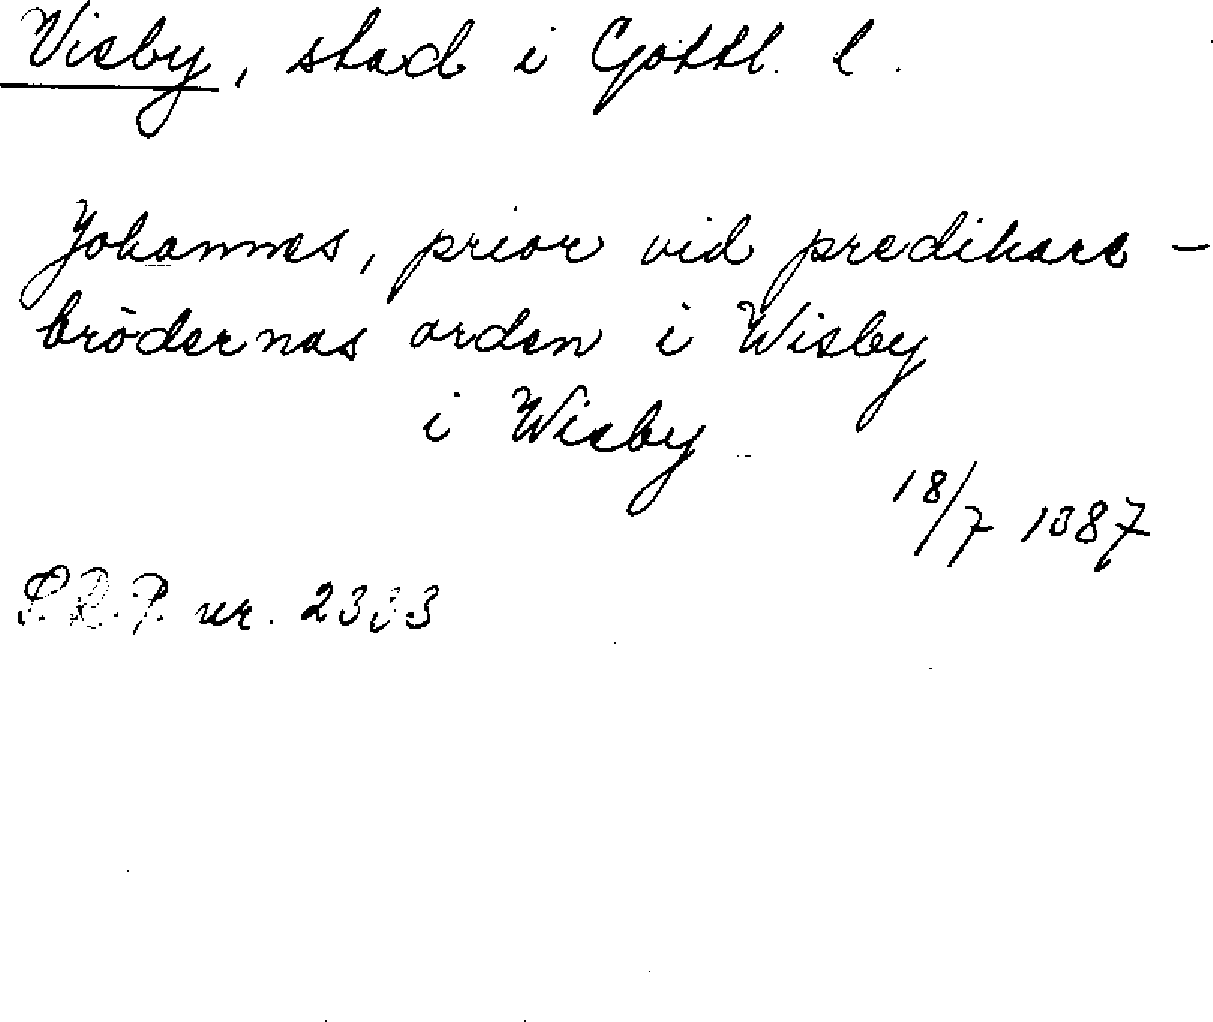 Visby, stad i Gottl. l.
Johannes, prior vid predikare-
brödernas orden i Wisby
i Wisby
18/7 1387
S.R.P. nr. 2333